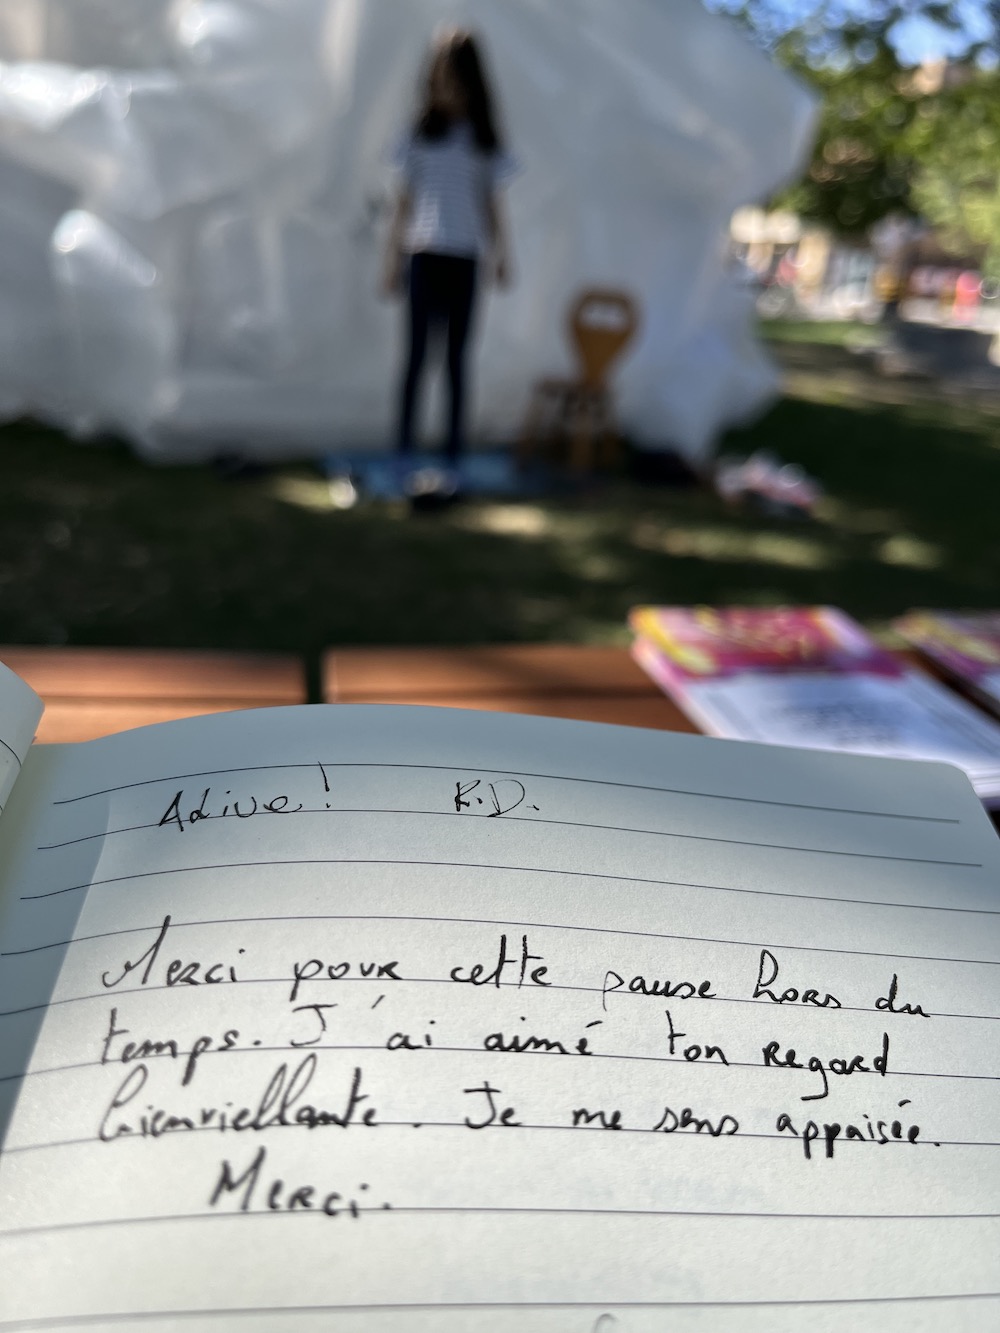 Alive! R.D.
Merci pour cette pause hors du
temps. J'ai aimé ton regard
bienviellante. Je me sens appaisée.
Merci.